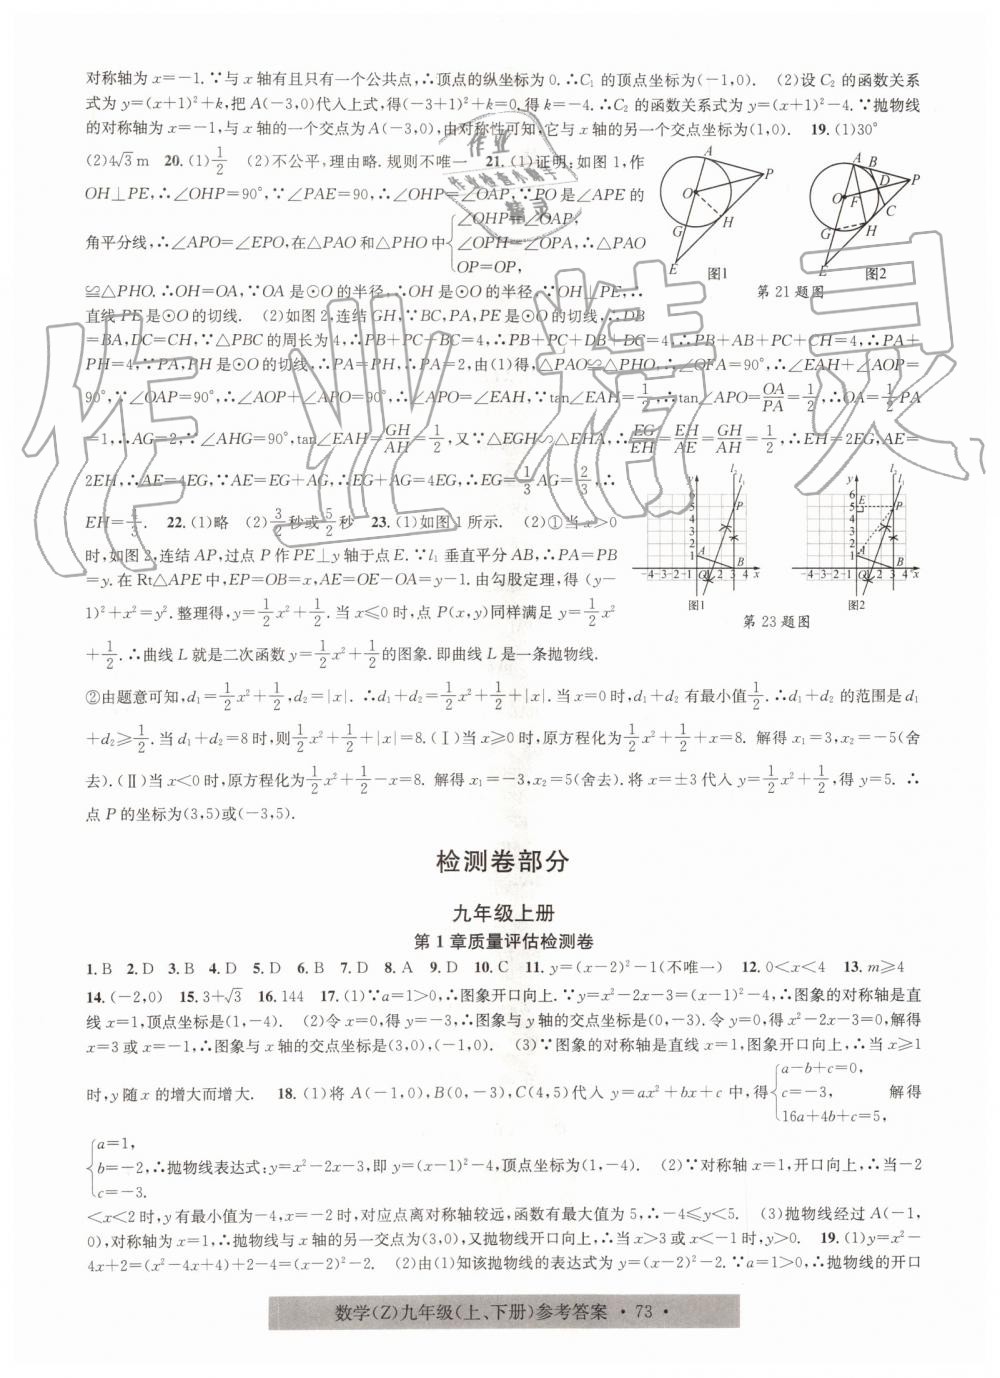 对称轴为 x=-1.∵与 x 轴有且只有一个公共点,∴顶点的纵坐标为0.∴C₁ 的顶点坐标为(-1,0). (2)设 C₂ 的函数关系
式为 y=(x+1)²+k,把 A(-3,0)代入上式,得(-3+1)²+k=0,得 k=-4.∴C₂ 的函数关系式为 y=(x+1)²-4.∵抛物线
的对称轴为 x=-1,与 x 轴的一个交点为 A(-3,0),由对称性可知,它与 x 轴的另一个交点坐标为(1,0). 19.(1)30°
(2)4√3 m 20.(1)1/2 (2)不公平,理由略.规则不唯一 21.(1)证明:如图1,作
OH⊥PE,∴∠OHP=90°,∵∠PAE=90,∴∠OHP=∠OAP,∵PO是∠APE的
角平分线,∴∠APO=∠EPO,在△PAO 和△PHO 中{∠OHP=∠OAP, ∠OPH=∠OPA, OP=OP, ∴△PAO
≌△PHO.∴OH=OA,∵OA 是⊙O 的半径,∴OH 是⊙O 的半径,∵OH⊥PE,∴
直线 PE 是⊙O 的切线. (2)如图2,连结 GH,∵BC,PA,PE 是⊙O 的切线,∴DB
=BA,DC=CH,∵△PBC 的周长为4,∴PB+PC+BC=4,∴PB+PC+DB+DC=4,∴PB+AB+PC+CH=4,∴PA+
PH=4,∵PA,PH 是⊙O 的切线,∴PA=PH,∴PA=2,由(1)得,△PAO≌△PHO,∴∠OFA=90°,∴∠EAH+∠AOP=
90°,∵∠OAP=90°,∴∠AOP+∠APO=90°,∴∠APO=∠EAH,∵tan∠EAH=1/2,∴tan∠APO=OA/PA=1/2,∴OA=1/2PA
=1,∴AG=2,∵∠AHG=90°,tan∠EAH=GH/AH=1/2,又∵△EGH∽△EHA,∴EG/EH=EH/AE=GH/AH=1/2,∴EH=2EG,AE=
2EH,∴AE=4EG,∵AE=EG+AG,∴EG+AG=4EG,∴EG=1/3AG=2/3,∴
EH=4/3. 22.(1)略 (2)3/2秒或5/2秒 23.(1)如图1所示. (2)①当 x>0
时,如图2,连结 AP,过点 P 作 PE⊥y 轴于点 E.∵l₁ 垂直平分 AB,∴PA=PB
=y.在 Rt△APE 中,EP=OB=x,AE=OE-OA=y-1.由勾股定理,得 (y-
1)²+x²=y².整理得,y=1/2x²+1/2.当 x≤0 时,点 P(x,y)同样满足 y=1/2x²
+1/2.∴曲线 L 就是二次函数 y=1/2x²+1/2的图象.即曲线 L 是一条抛物线.
A O P H G E 图1
A B P D O F C G H E 图2
第21题图
y 6 5 4 3 2 1 A O -4 -3 -2 -1 1 2 3 4 x B P l₁ l₂ 图1
y 6 5 4 3 2 1 A O -4 -3 -2 -1 1 2 3 4 x B P E l₁ l₂ 图2
第23题图
②由题意可知,d₁=1/2x²+1/2,d₂=|x|.∴d₁+d₂=1/2x²+1/2+|x|.当 x=0 时,d₁+d₂ 有最小值1/2.∴d₁+d₂ 的范围是 d₁
+d₂≥1/2.当 d₁+d₂=8 时,则1/2x²+1/2+|x|=8.(Ⅰ)当 x≥0 时,原方程化为1/2x²+1/2+x=8. 解得 x₁=3,x₂=-5(舍
去).(Ⅱ)当 x<0 时,原方程化为1/2x²+1/2-x=8. 解得 x₁=-3,x₂=5(舍去).将 x=±3 代入 y=1/2x²+1/2,得 y=5. ∴
点 P 的坐标为(3,5)或(-3,5).
检测卷部分
九年级上册
第1章质量评估检测卷
1.B 2.D 3.B 4.D 5.D 6.B 7.D 8.A 9.D 10.C 11.y=(x-2)²-1(不唯一) 12.0<x<4 13.m≥4
14.(-2,0) 15.3+√3 16.144 17.(1)∵a=1>0,∴图象开口向上.∵y=x²-2x-3=(x-1)²-4,∴图象的对称轴是直
线 x=1,顶点坐标是(1,-4). (2)令 x=0,得 y=-3,∴图象与 y 轴的交点坐标是(0,-3).令 y=0,得 x²-2x-3=0,解得
x=3 或 x=-1,∴图象与 x 轴的交点坐标是(3,0),(-1,0). (3)∵图象的对称轴是直线 x=1,图象开口向上,∴当 x≥1
时,y 随 x 的增大而增大. 18.(1)将 A(-1,0),B(0,-3),C(4,5)代入 y=ax²+bx+c 中,得{a-b+c=0, c=-3, 16a+4b+c=5, 解得
{a=1, b=-2, c=-3. ∴抛物线表达式:y=x²-2x-3,即 y=(x-1)²-4,顶点坐标为(1,-4). (2)∵对称轴 x=1,开口向上,∴当-2
<x<2 时,y 有最小值为-4,x=-2 时,对应点离对称轴较远,函数有最大值为5,∴-4≤y<5. (3)抛物线经过 A(-1,
0),对称轴为 x=1,∴抛物线与 x 轴的另一交点为(3,0),又抛物线开口向上,∴当 x>3 或 x<-1 时,y>0. 19.(1)y=x²-
4x+2=(x²-4x+4)+2-4=(x-2)²-2. (2)由(1)知该抛物线的表达式为 y=(x-2)²-2.∵a=1>0,∴抛物线的开口
数学(Z)九年级(上、下册)参考答案 · 73 ·
作业精灵
作业
作业检查小帮手
精灵